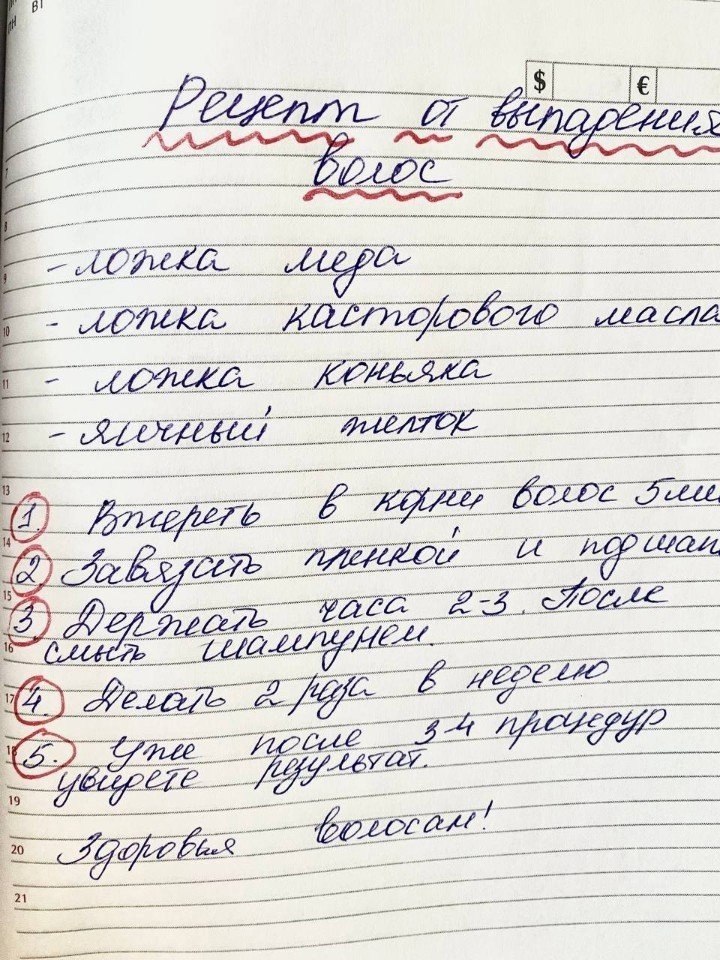 ВТ
ПН
$ €
Рецепт от выпадения
волос
7
8
- ложка меда
9
- ложка касторового масла
10
- ложка коньяка
11
- яичный желток
12
13
1. Втереть в корни волос 5 ми
14
2 Завязать пленкой и под шап
15
3. Держать часа 2-3. После
16 смыть шампунем.
4. Делать 2 раза в неделю
17
5. Уже после 3-4 процедур
18
увидете результат.
19
Здоровья волосам!
20
21